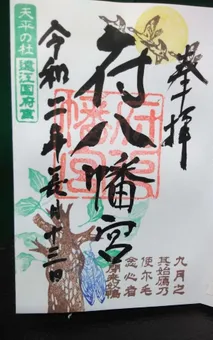 奉拝
府八幡宮
令和二年長月十三日
天平の杜
遠江国府宮
府八幡宮
九月之
其始雁乃
使尓毛
念心者